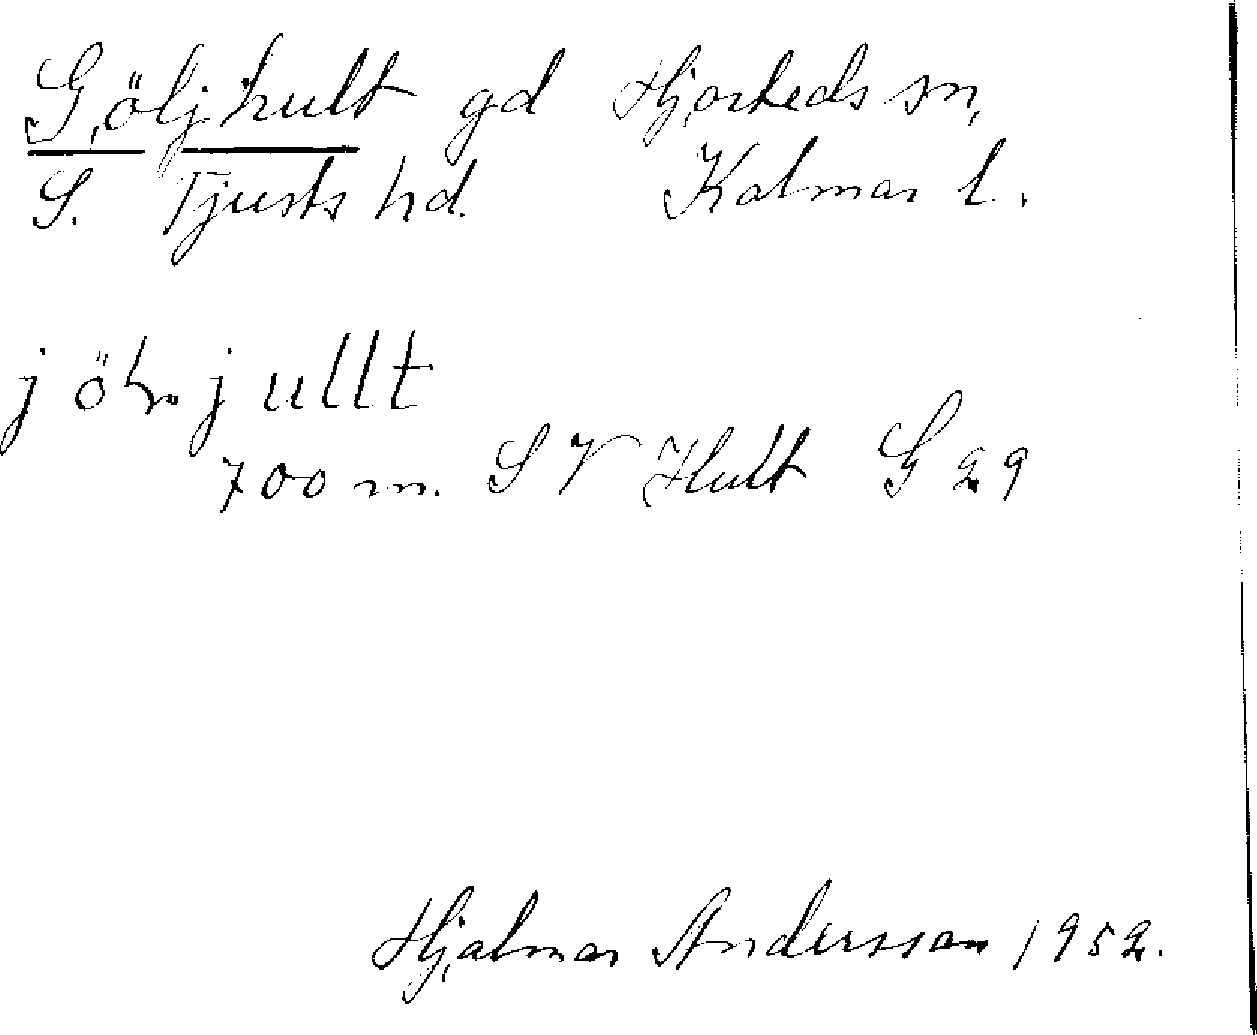 Göljhult gd Hjorteds sn,
S. Tjusts hd. Kalmar l.
700 m. SV Hult G 29
Hjalmar Andersson 1952.